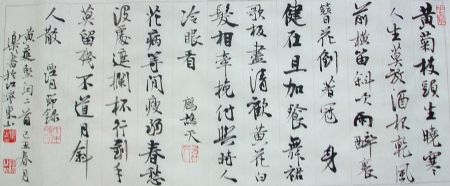 黄菊枝头生晓寒
人生莫放酒杯乾風
前橫笛斜吹雨醉裏
簪花倒著冠 身
健在且加餐舞裙
歌板盡清歡黄花白
髮相牽挽付與時人
冷眼看 鷓鴣天
花病等閒瘦弱春愁
没處遮攔杯行到手
莫留殘不道月斜
人散 月 錄
黄庭堅詞二首己丑春月